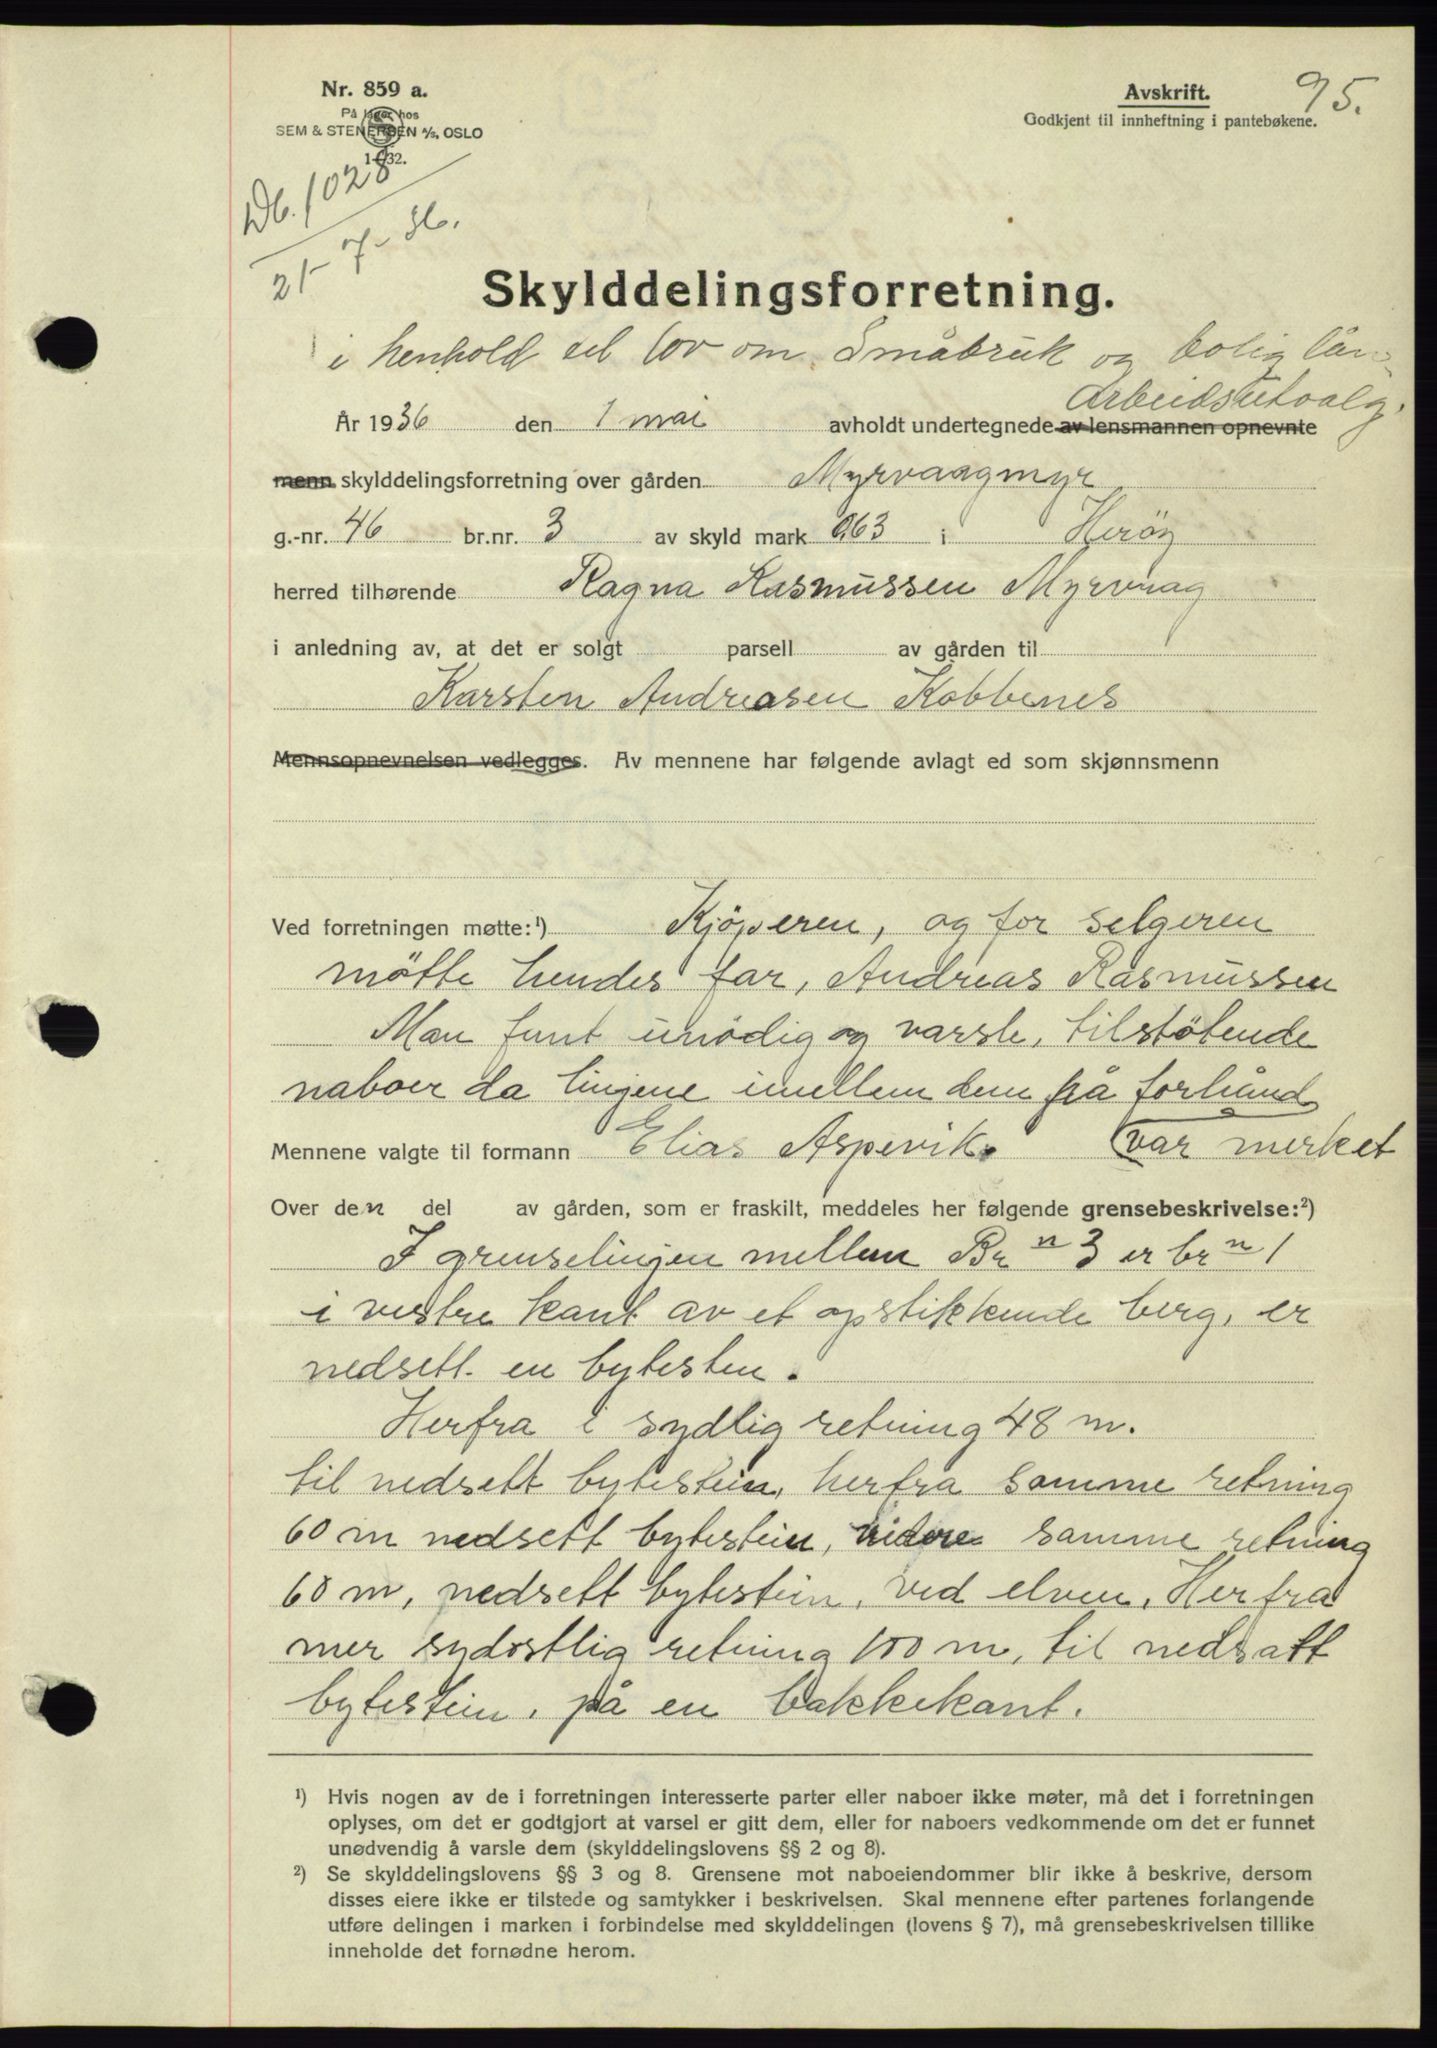 Nr. 859 a.
På lager hos
SEM & STENERSEN A/S, OSLO
1-32.
Avskrift.
Godkjent til innheftning i pantebøkene.
95.
Db. 1028
21-7-36.
Skylddelingsforretning.
i henhold til lov om Småbruk og bolig lån
Arbeidsutvalg.
År 1936 den 1 mai avholdt undertegnede av lensmannen opnevnte
menn skylddelingsforretning over gården Myrvaagmyr
g.-nr. 46 br.nr. 3 av skyld mark 0,63 i Herøy
herred tilhørende Ragna Rasmussen Myrvaag
i anledning av, at det er solgt parsell av gården til
Karsten Andreasen Kobbenes
Mennsopnevnelsen vedlegges. Av mennene har følgende avlagt ed som skjønnsmenn
Ved forretningen møtte:¹) Kjöperen, og for selgeren
mötte hendes far, Andreas Rasmussen
Man funt unödig og varsle, tilstötende
naboer da linjene imellem dem på forhånd
Mennene valgte til formann Elias Aspevik. var merket
Over den del av gården, som er fraskilt, meddeles her følgende grensebeskrivelse:²)
I grenselinjen mellem Br n 3 er br n 1
i vestre kant av et opstikkende berg, er
nedsett en bytesten.
Herfra i sydlig retning 48 m.
til nedsett bytestein, herfra samme retning
60 m nedsett bytestein, videre samme retning
60 m, nedsett bytestein, ved elven, Herfra
mer sydostlig retning 100 m, til nedsatt
bytestein, på en bakkekant.
¹) Hvis nogen av de i forretningen interesserte parter eller naboer ikke møter, må det i forretningen
oplyses, om det er godtgjort at varsel er gitt dem, eller for naboers vedkommende om det er funnet
unødvendig å varsle dem (skylddelingslovens §§ 2 og 8).
²) Se skylddelingslovens §§ 3 og 8. Grensene mot naboeiendommer blir ikke å beskrive, dersom
disses eiere ikke er tilstede og samtykker i beskrivelsen. Skal mennene efter partenes forlangende
utføre delingen i marken i forbindelse med skylddelingen (lovens § 7), må grensebeskrivelsen tillike
inneholde det fornødne herom.